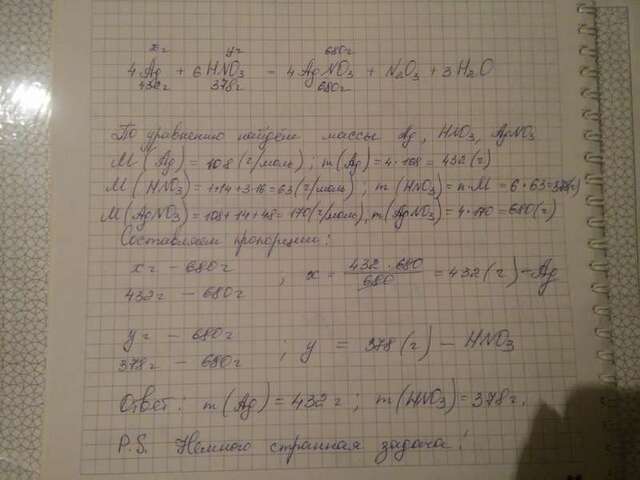 x г y г 680г
4Ag + 6HNO3 – 4AgNO3 + N2O3 + 3H2O
432г 378г 680г
По уравнению найдем массы Ag, HNO3, AgNO3
M(Ag) = 108 (г/моль); m(Ag) = 4·108 = 432(г)
M(HNO3) = 1+14+3·16 = 63(г/моль); m(HNO3) = n·M = 6·63 = 378(г)
M(AgNO3) = 108+14+48 = 170(г/моль), m(AgNO3) = 4·170 = 680(г)
Составляем пропорцию:
x г – 680г
432г – 680г
; x = 432·680 / 680 = 432(г) – Ag
y г – 680г
378г – 680г
; y = 378(г) – HNO3
Ответ: m(Ag) = 432г; m(HNO3) = 378г.
P.S. Немного странная задача!